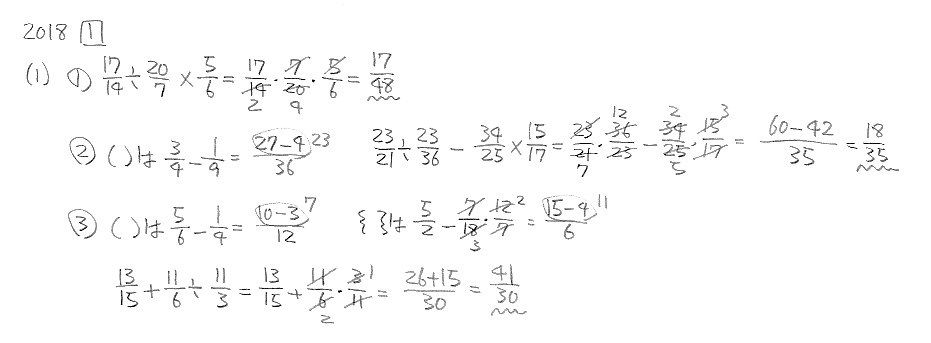 2018 1
(1) ① 17/14 ÷ 20/7 × 5/6 = 17/14 · 7/20 · 5/6 = 17/48
2 4
② ( )は 3/4 - 1/9 = 27-4/36 23 23/21 ÷ 23/36 - 34/25 × 15/17 = 23/21 · 36/23 - 34/25 · 15/17 = 60-42/35 = 18/35
12 2 3 7 5
③ ( )は 5/6 - 1/4 = 10-3/12 7 { }は 5/2 - 7/18 · 12/7 = 15-4/6 11
2 3
13/15 + 11/6 ÷ 11/3 = 13/15 + 11/6 · 3/11 = 26+15/30 = 41/30
1 2